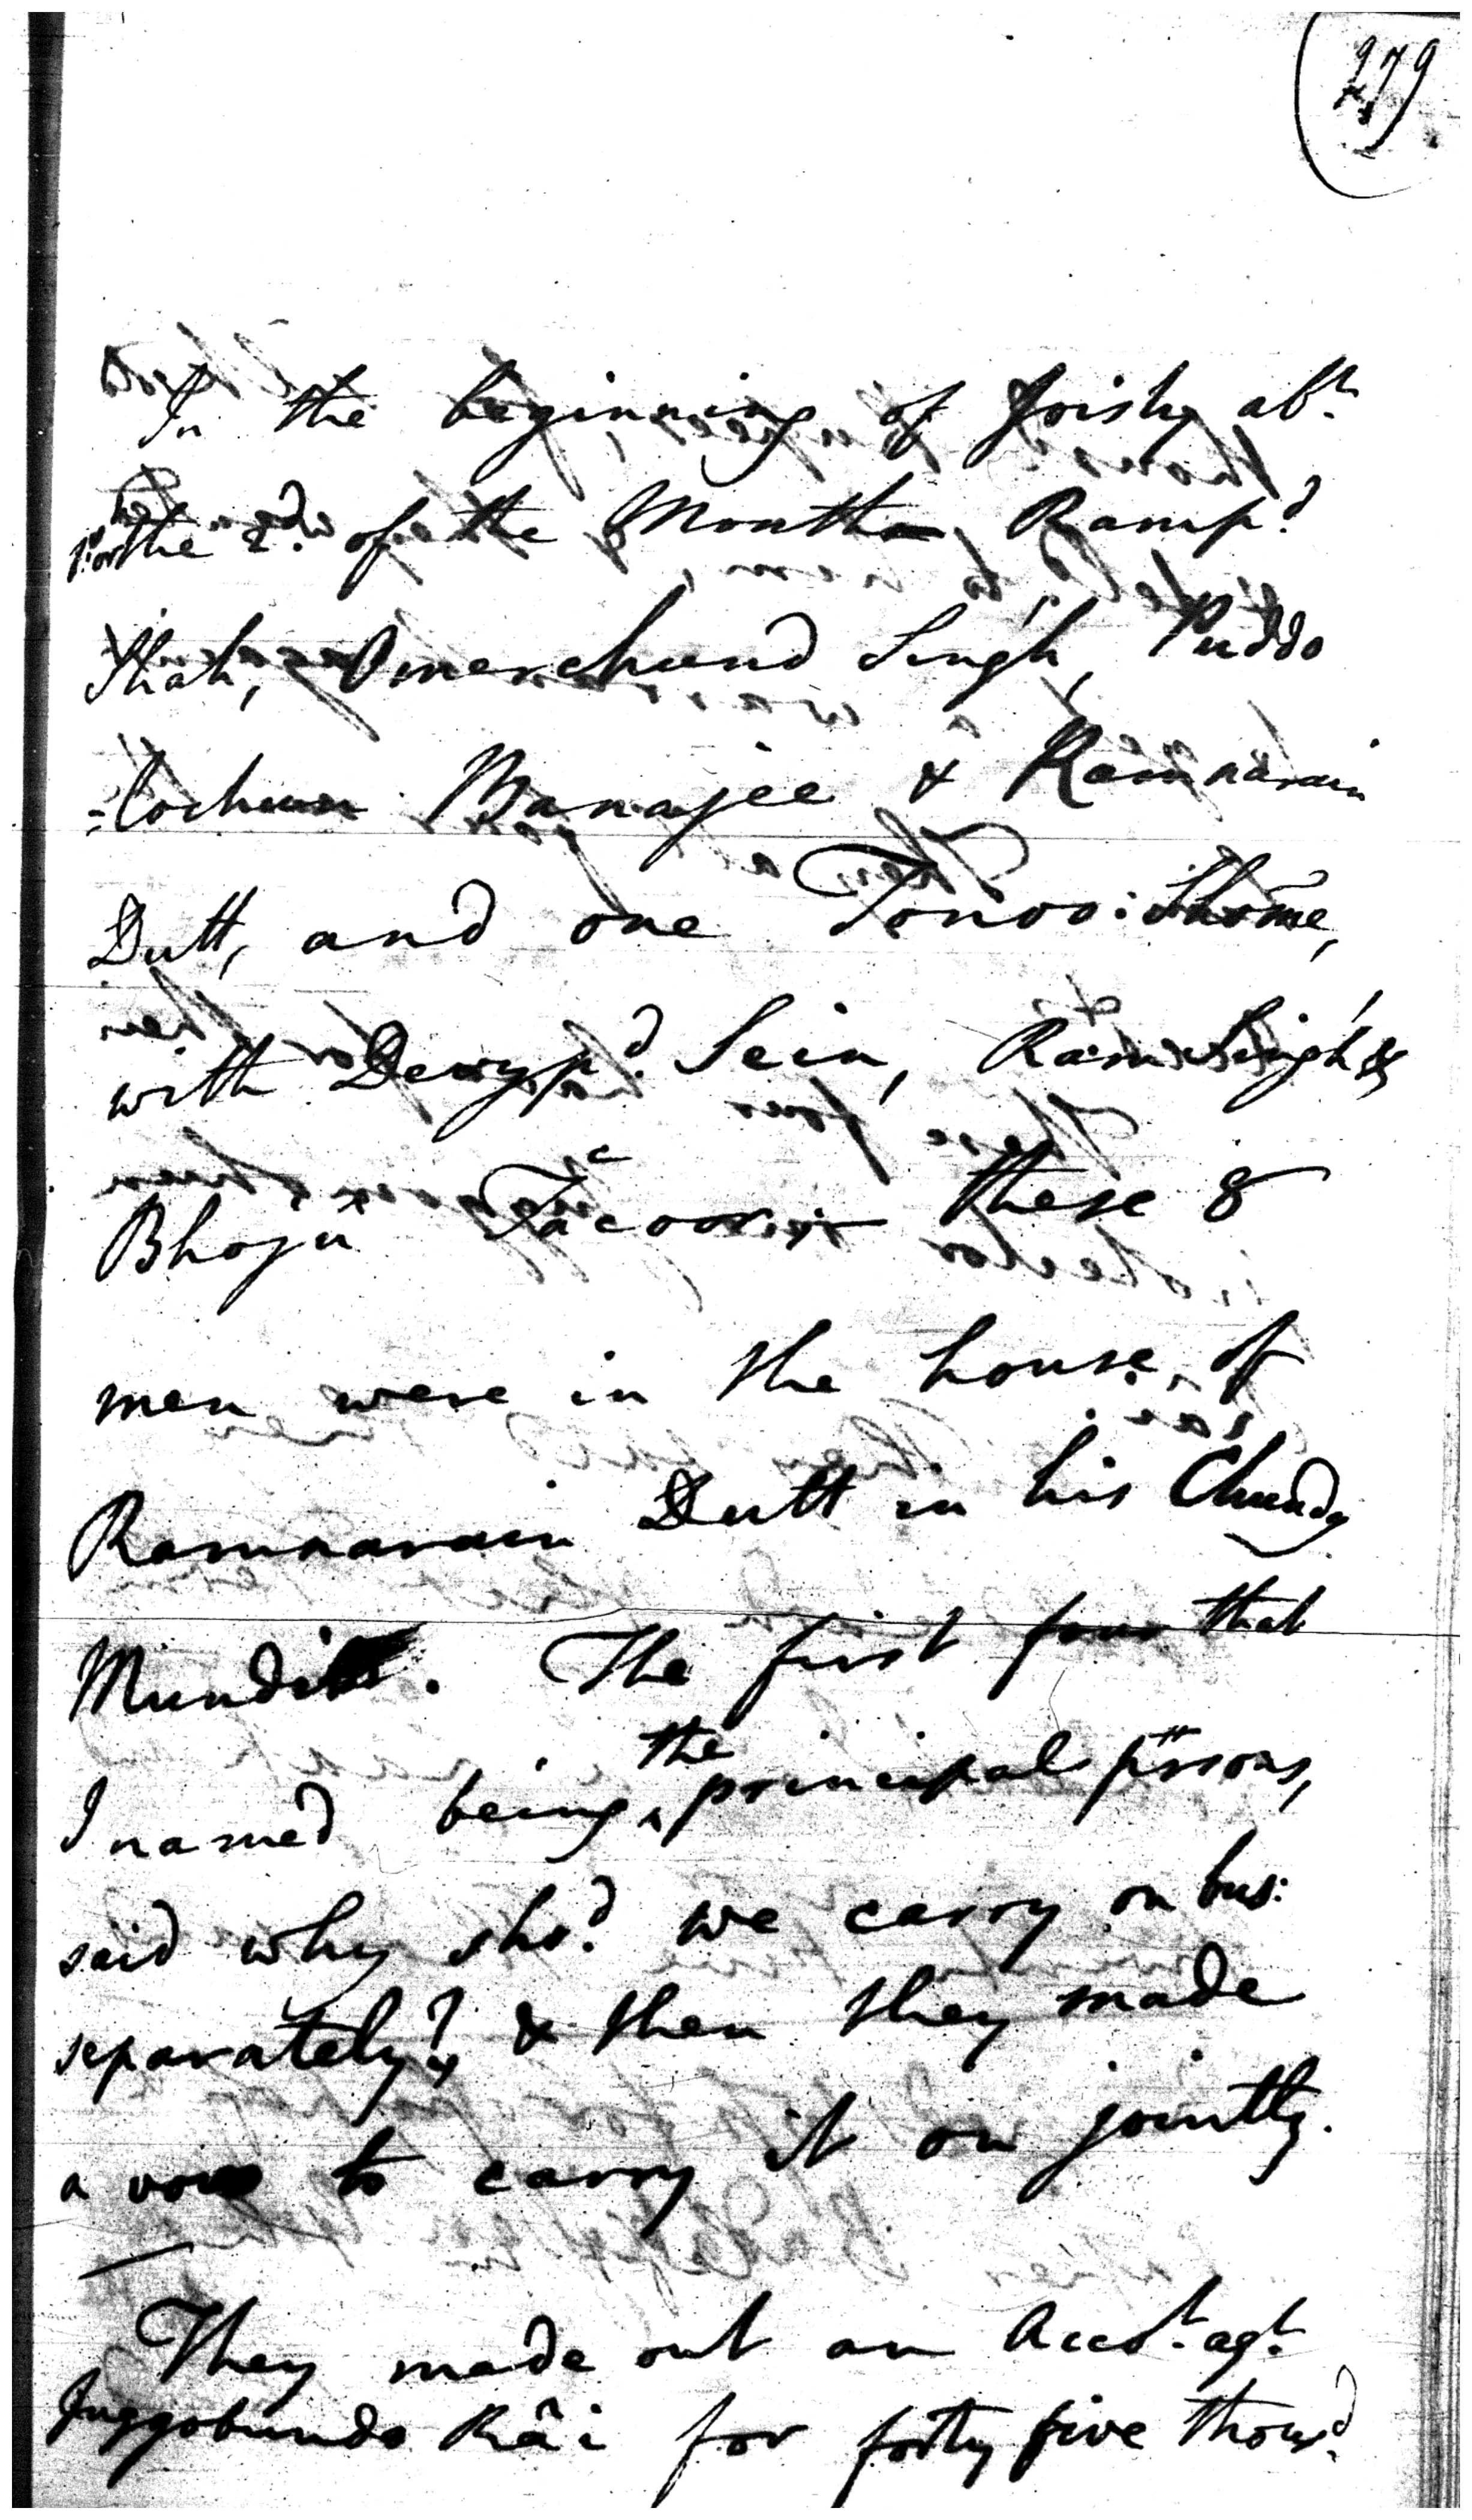 279
In the beginning of Joisty abt.
1st or the 2d. of the Month Rampd.
Shah, Omerchund Singh, Puddo
=lochun Banajee & Ramnarain
Dutt, and one Tonoo: Shome,
with Deeypd. Sein, Ram Singh &
Bhojû Tacoor these 8
men were in the house of
Ramnarain Dutt in his Chundy
Mundi. The first four that
I named being the principal pssons,
said why shod. we carry on bus:
separately? & then they made
a vow to carry it on jointly.
They made out an Accot. agt.
Juggobundo Râi for forty five thousd.